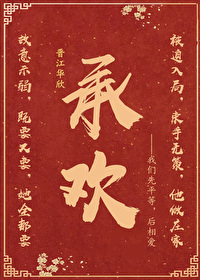 被迫入局，束手无策，他做庄家
晋江华欣
承欢
——我们先平等，后相爱
故意示弱，既要又要，她全都要